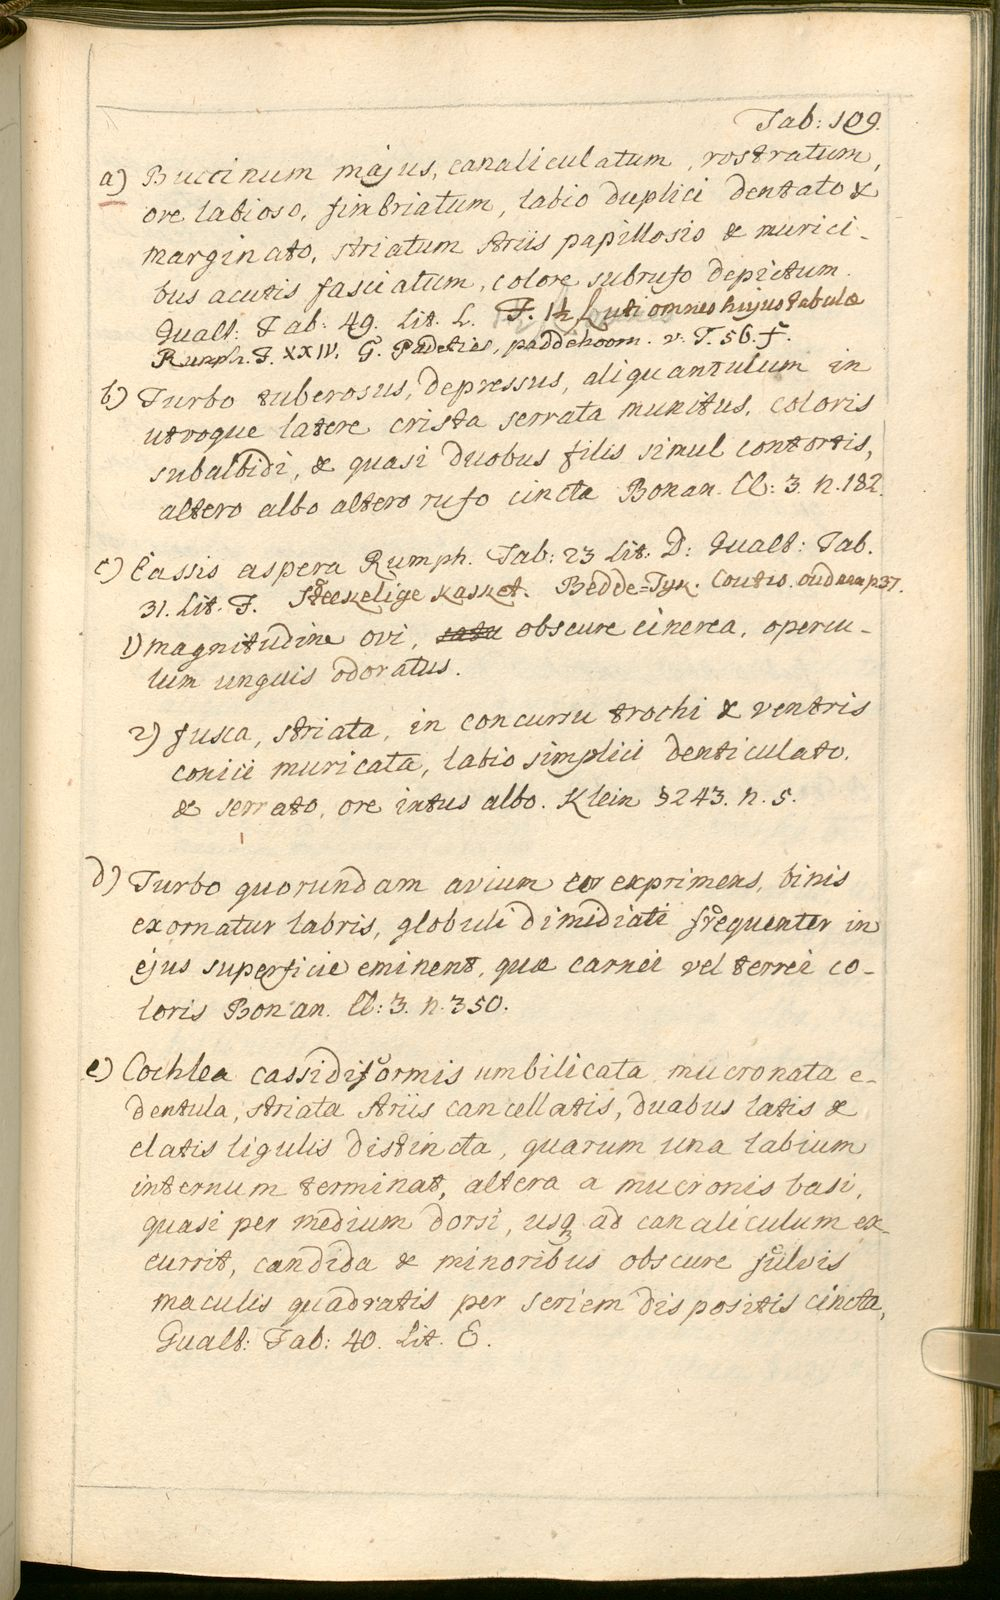 Tab: 109.
a) Buccinum majus, canaliculatum, rostratum,
ore labioso, fimbriatum, labio duplici dentato &
marginato, striatum striis papillosis & murici-
bus acutis fasciatum, colore subrufo depictum.
Gualt: Tab: 49. Lit. L. F. 1½ L uti omnes hujus tabulæ
Rumph. T. XXIV. G. paddehoorn. v. T. 56. f.
b) Turbo tuberosus, depressus, aliquantulum in
utroque latere crista serrata munitus, coloris
subalbidi, & quasi duobus filis simul contortis,
altero albo altero rufo cincta Bonan. Cl: 3. n. 182.
c) Cassis aspera Rumph. Tab: 23 Lit: D: Gualt: Tab.
31. Lit. F. Steekelige kasket. Bedde=Tyk. p 37.
1) magnitudine ovi, obscure cinerea, opercu-
lum unguis odoratus.
2) fusca, striata, in concursu trochi & ventris
conici muricata, labio simplici denticulato.
& serrato, ore intus albo. Klein §243. n. 5.
d) Turbo quorundam avium cor exprimens, binis
exornatur labris, globuli dimidiati frequenter in
ejus superficie eminent, quæ carnei vel terrei co-
loris Bonan. Cl: 3. n. 350.
e) Cochlea cassidiformis umbilicata mucronata e-
dentula, striata striis cancellatis, duabus latis &
elatis ligulis distincta, quarum una labium
internum terminat, altera a mucronis basi,
quasi per medium dorsi, usq ad canaliculum ex-
currit, candida & minoribus obscure fulvis
maculis quadratis per seriem dispositis cincta,
Gualt: Tab: 40. Lit. E.